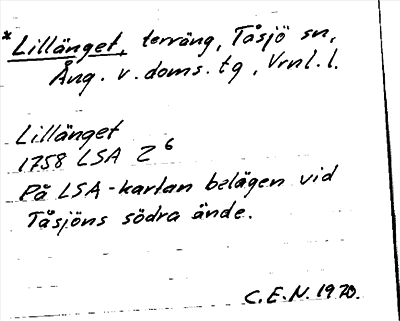 *Lillänget, terräng, Tåsjö sn,
Ång. v. doms. tg, Vrnl. l.
Lillänget
1758 LSA Z 6
På LSA-kartan belägen vid
Tåsjöns södra ände.
C.E.N. 1970.